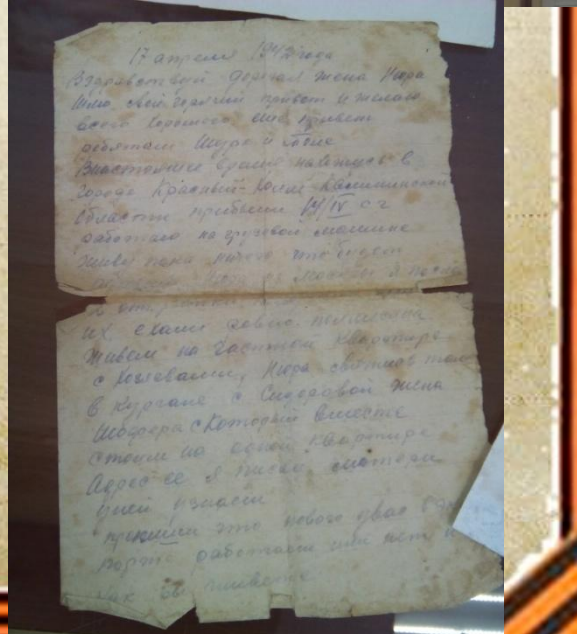 17 апреля 1942 года
Вздравствуй дорогая жена Нюра
Шлю свой горячий привет и желаю
всего хорошего еще привет
ребятам Шуре и Толе
Внастоящее время нахожусь в
городе Красный-Холм Калининской
Области прибыли 14/IV с.г
работаю на грузовой машине
живу пока ничего что будет
Нюра из Москвы я послал
их ехали
живем на Частной квартире
с Козловым, Нюра свяжись там
в Кургане с Сидоровой жена
Шофера с Которым вместе
стоим на одной квартире
Адрес ее я писал смотри
уней узнаеш
пропиши что нового увас
работаеш или нет и
как вы живете